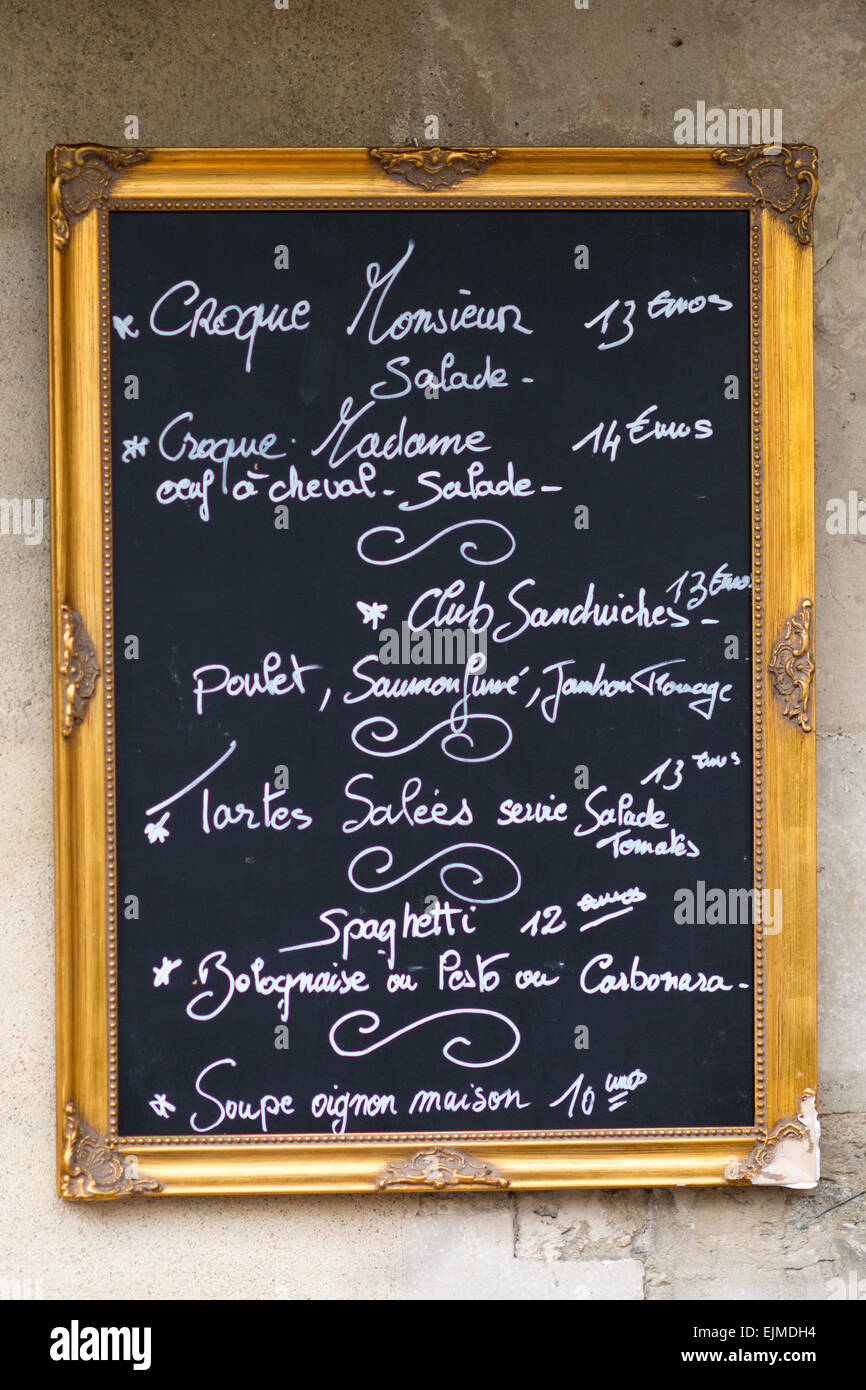 * Croque Monsieur 13 Euros
Salade -
* Croque Madame 14 Euros
oeuf à cheval - Salade -
* Club Sandwiches - 13 Euros
Poulet, Saumon fumé, Jambon Fromage
* Tartes Salées servie Salade Tomates 13 euros
Spaghetti 12 euros
* Bolognaise ou Pesto ou Carbonara -
* Soupe oignon maison 10 euros
alamy
Image ID: EJMDH4
www.alamy.com